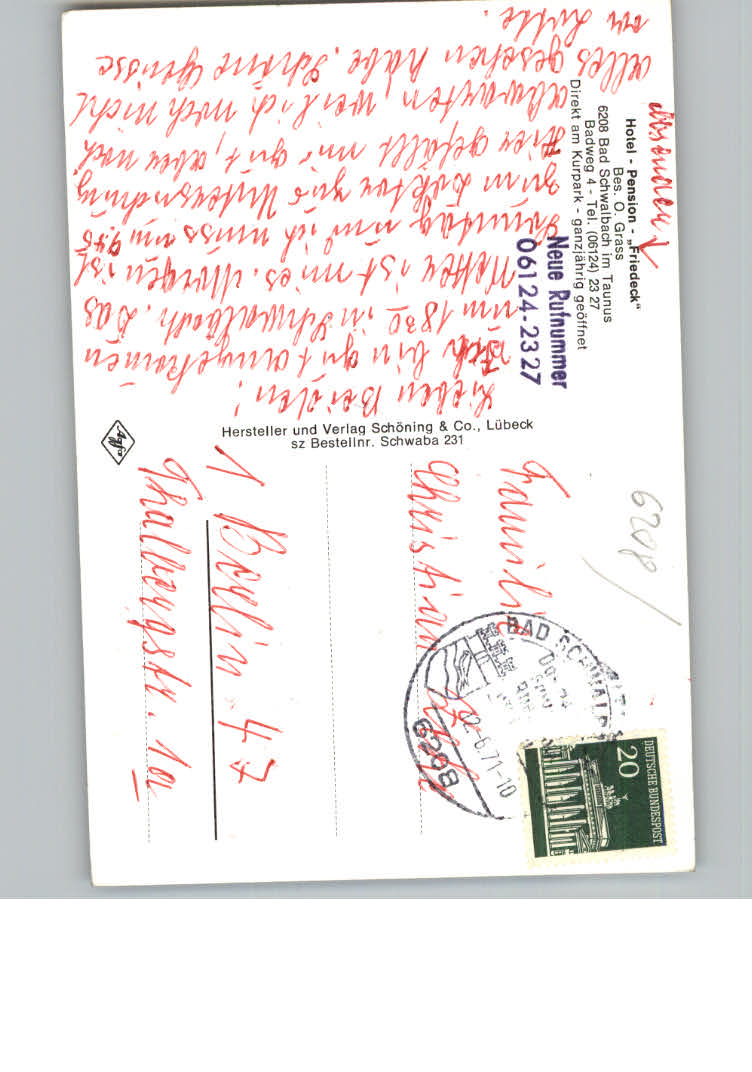 Absender
Hotel - Pension - „Friedeck“
Bes. O. Grass
6208 Bad Schwalbach im Taunus
Badweg 4 - Tel. (06124) 23 27
Direkt am Kurpark - ganzjährig geöffnet
Neue Rufnummer
06124-2327
Lieben Beiden!
Ich bin gut angekommen
um 18 30 in Schwalbach. Das
Wetter ist mies. Morgen ist
Sonntag und ich muss um 9.45
zum Doktor zur Untersuchung
Hier gefällt mir gut, aber noch
abwarten, weil ich noch nicht
alles gesehen habe. Schöne Grüsse
Hersteller und Verlag Schöning & Co., Lübeck
sz Bestellnr. Schwaba 231
Agfa
6208
DEUTSCHE BUNDESPOST
20
BAD SCHWALBACH
-6.71-10
Familie
Christian
1 Berlin 47
Thalbergstr. 1a